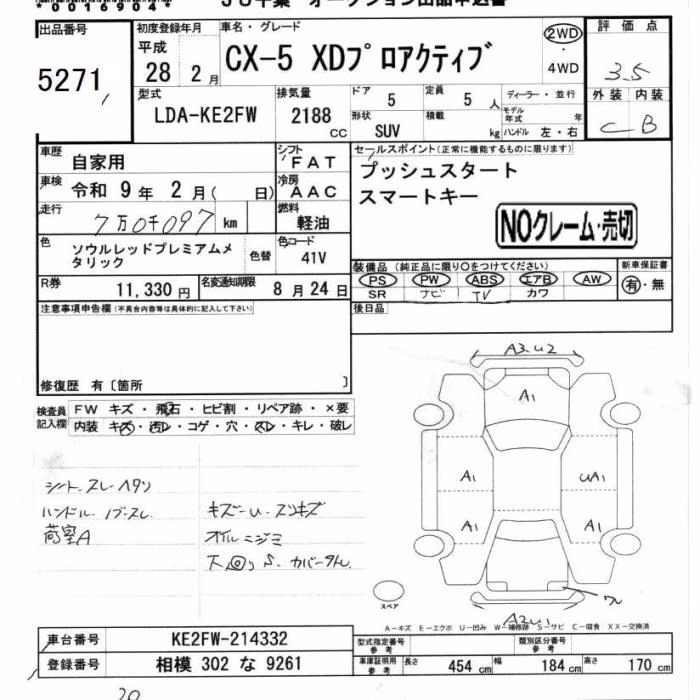 *0016904*
JU千葉 オークション出品申込書
出品番号
5271
初度登録年月
平成
28 2月
車名・グレード
CX-5 XDプロアクティブ
2WD
・
4WD
評価点
3.5
外装 内装
C B
型式
LDA-KE2FW
排気量
2188
CC
ドア
5
定員
5 人
形状
SUV
積載
kg
ディーラー・並行
モデル年式 年
ハンドル 左・右
車歴
自家用
シフト
FAT
車検
令和 9年 2月( 日)
冷房
AAC
走行
7万0千097 km
燃料
軽油
色
ソウルレッドプレミアムメタリック
色替
色コード
41V
R券
11,330 円
名変通知期限
8月24日
セールスポイント(正常に機能するものに限ります)
プッシュスタート
スマートキー
NOクレーム・売切
装備品(純正品に限り○をつけてください)
PS PW ABS エアB AW
SR ナビ TV カワ
新車保証書
有・無
後日品
注意事項申告欄(不具合内容等は具体的に記入して下さい)
修復歴 有〔箇所 〕
検査員記入欄
FW キズ・飛石・ヒビ割・リペア跡・×要
内装 キズ・汚レ・コゲ・穴・スレ・キレ・破レ
シートスレ・ヘタリ
ハンドル
荷室A
キズ〜U スリキズ
オイルニジミ
下回りS カバー
A3 U2
A1
A1
UA1
A1
A1
A2
スペア
A-キズ E-エクボ U-凹み W-補修跡 S-サビ C-腐食 XX-交換済
車台番号
KE2FW-214332
登録番号
相模 302 な 9261
型式指定番号
参考
類別区分番号
参考
車庫証明用
参考
長さ 454 cm 幅 184 cm 高さ 170 cm
20